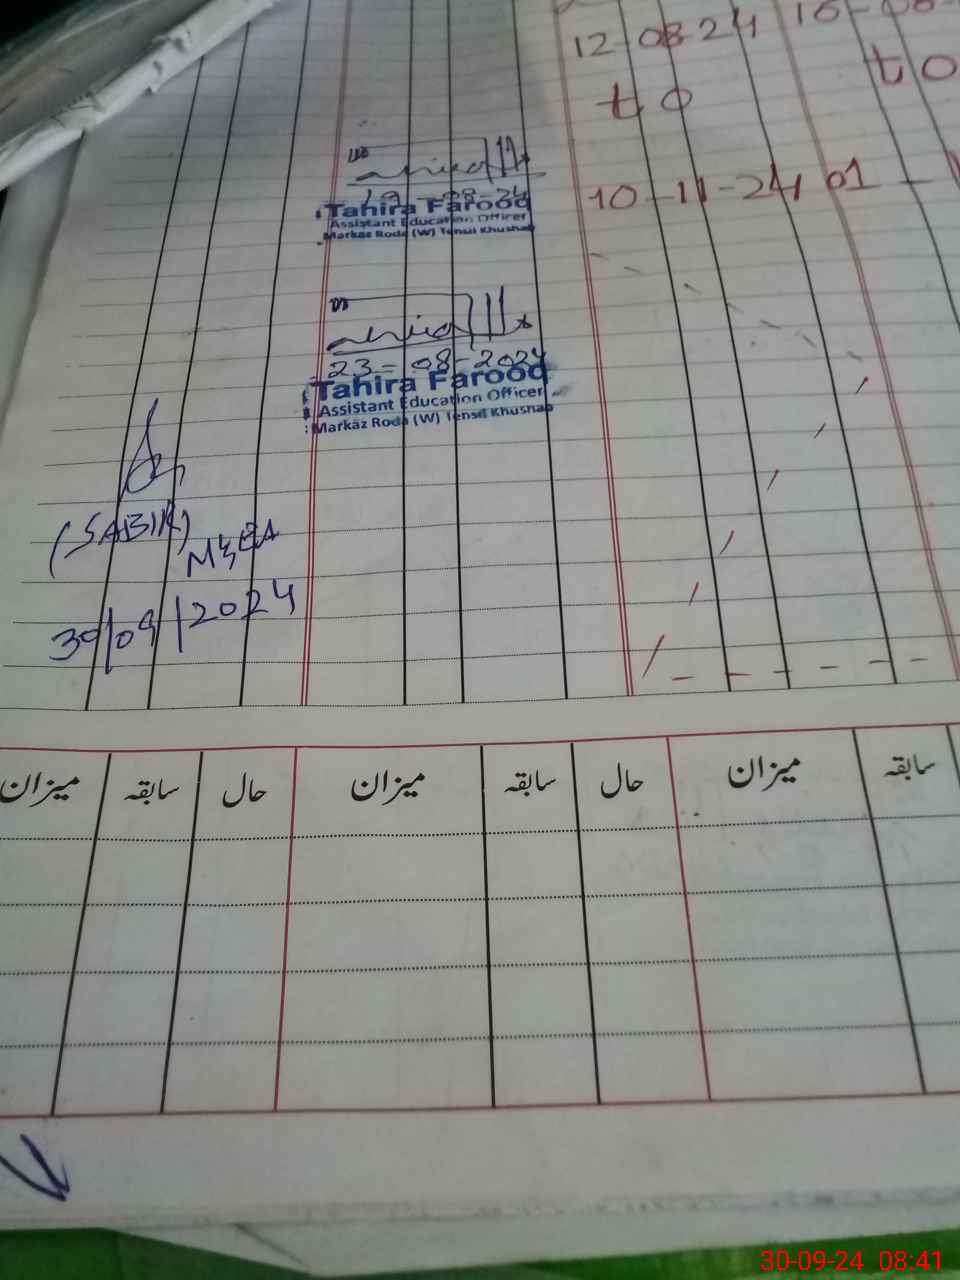 12-08-24
to
10-11-24
16-08-
to
01-
19-08-24
Tahira Farooq
Assistant Education Officer
Markaz Roda (W) Tehsil Khushab
23-08-2024
Tahira Farooq
Assistant Education Officer
Markaz Roda (W) Tehsil Khushab
(SABIR)
30/09/2024
میزان سابقہ حال میزان سابقہ حال میزان سابقہ
30-09-24 08:41